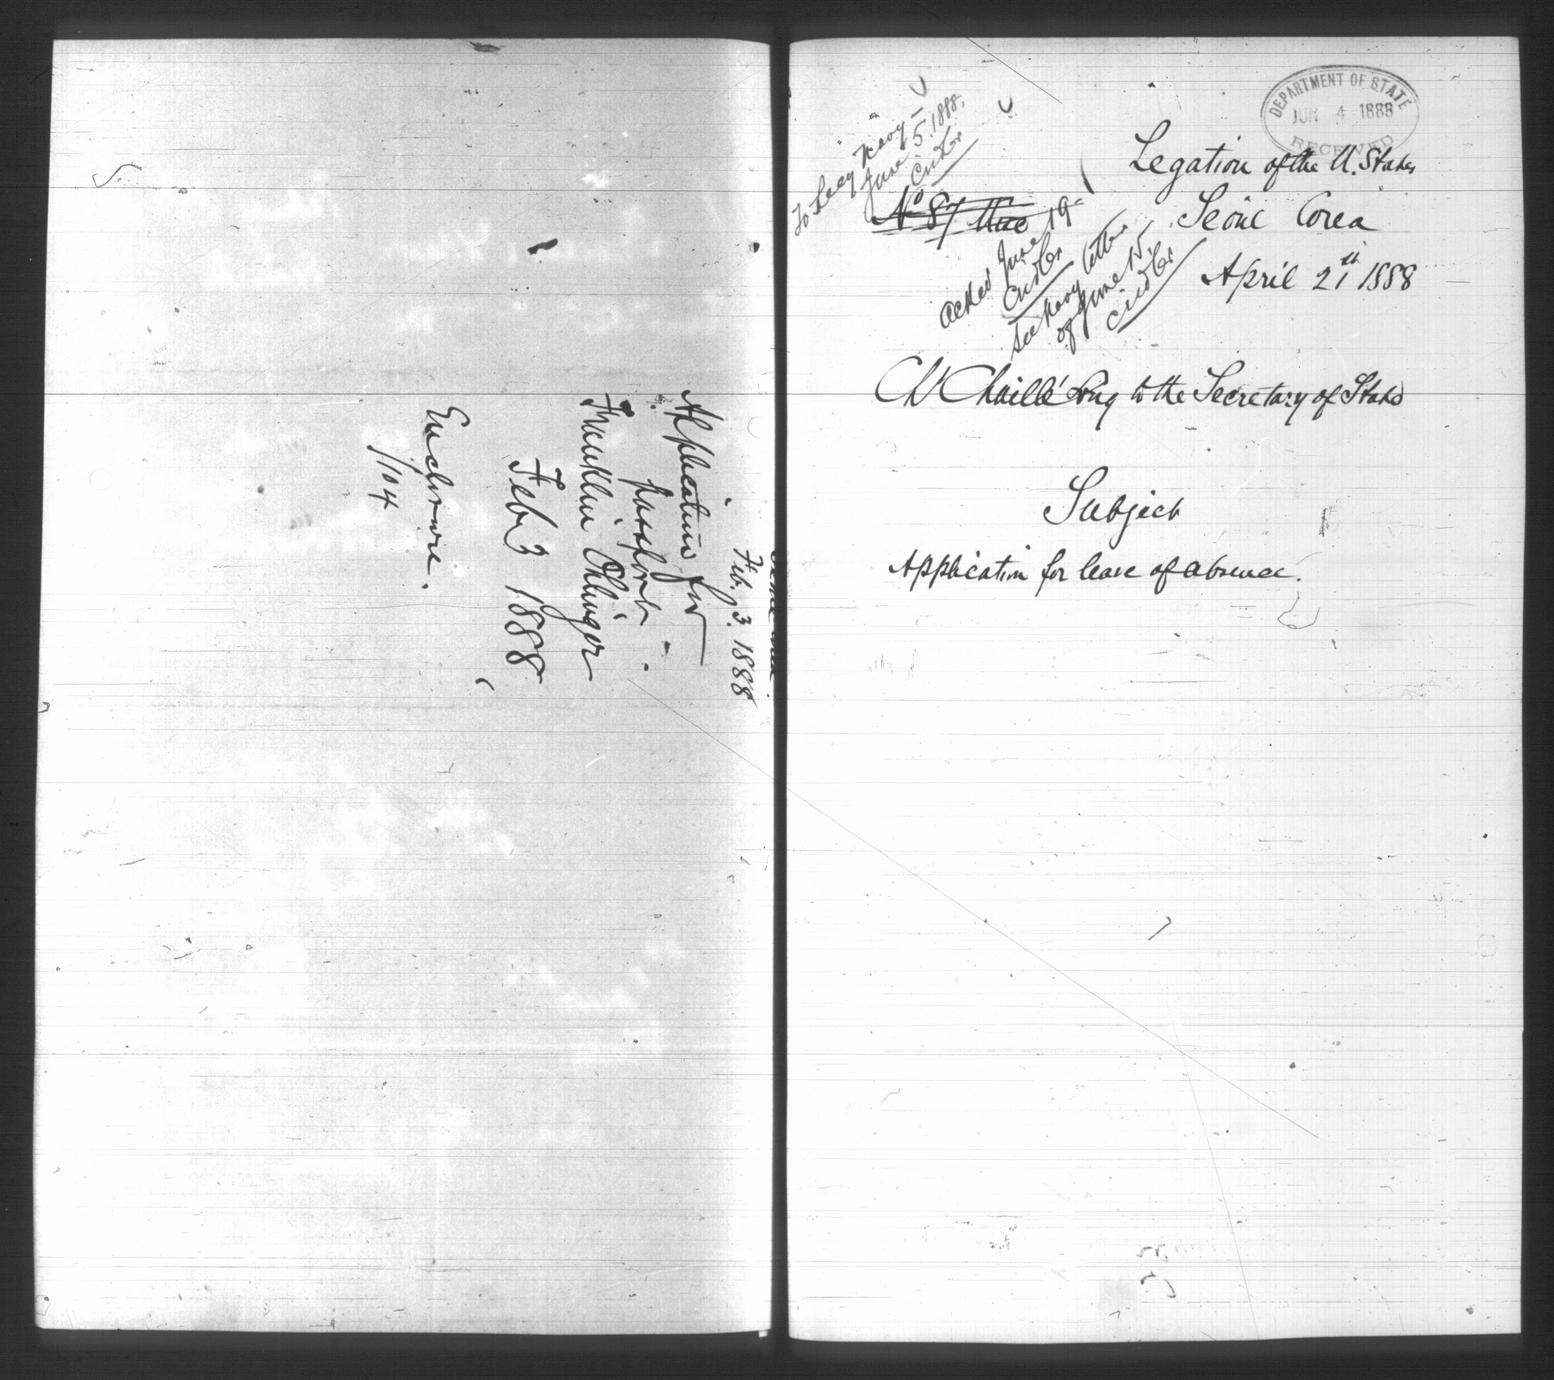 Feb. 3. 1888
Application for
passport.
Franklin Ohlinger
Feb 3 1888
Enclosure.
1/104
DEPARTMENT OF STATE
JUN 4 1888
RECEIVED
To Secy Navy
June 5. 1888.
Legation of the U. States
No 87
Seoul Corea
April 21st 1888
Acked June 19
See Navy letter
of June 15
Ch Chaillé Long to the Secretary of State
Subject
Application for leave of absence.